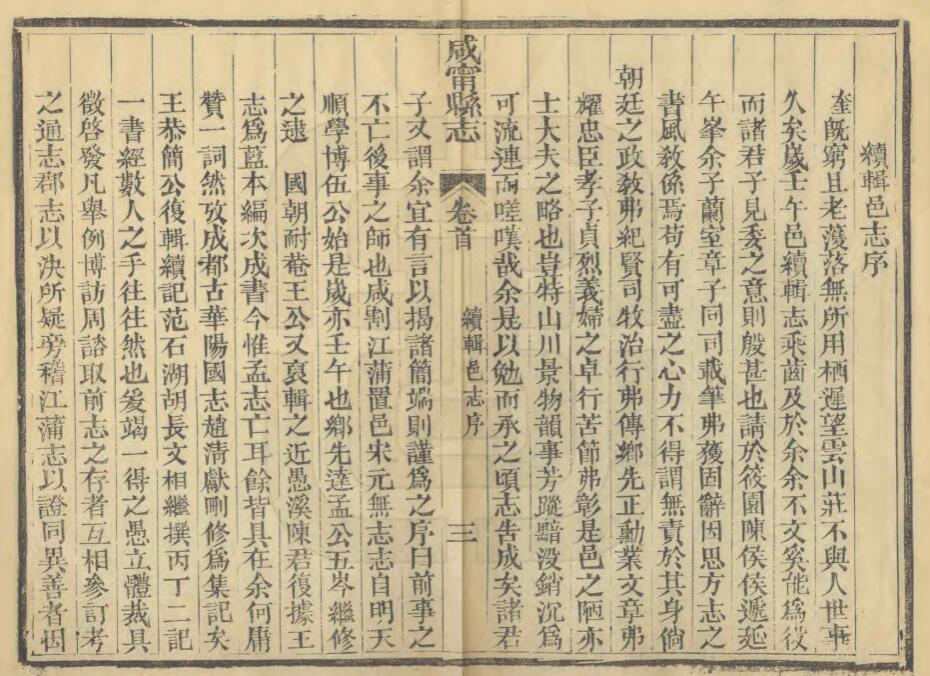 續輯邑志序
奎既窮且老濩落無所用栖遲望雲山莊不與人世事
久矣歲壬午邑續輯志乘齒及於余余不文奚能爲役
而諸君子見委之意則殷甚也請於筱園陳侯侯遞延
午峯余子蘭室章子同司載筆弗獲固辭因思方志之
書風敎係焉苟有可盡之心力不得謂無責於其身倘
朝廷之政敎弗紀賢司牧治行弗傳鄉先正勳業文章弗
耀忠臣孝子貞烈義婦之卓行苦節弗彰是邑之陋亦
士大夫之略也豈特山川景物韻事芳蹤黯没銷沉爲
可流連而嗟嘆哉余是以勉而承之頃志吿成矣諸君
咸甯縣志
卷首
續輯邑志序
三
子又謂余宜有言以揭諸簡端則謹爲之序曰前事之
不亡後事之師也咸割江蒲置邑宋元無志志自明天
順學博伍公始是歲亦壬午也鄉先達孟公五岑繼修
之逮　國朝耐菴王公又裒輯之近愚溪陳君復據王
志爲藍本編次成書今惟孟志亡耳餘皆具在余何庸
贊一詞然攷成都古華陽國志趙淸獻刪修爲集記矣
王恭簡公復輯續記范石湖胡長文相繼撰丙丁二記
一書經數人之手往往然也爰竭一得之愚立體裁具
徵啓發凡舉例博訪周諮取前志之存者互相參訂考
之通志郡志以決所疑旁稽江蒲志以證同異善者因